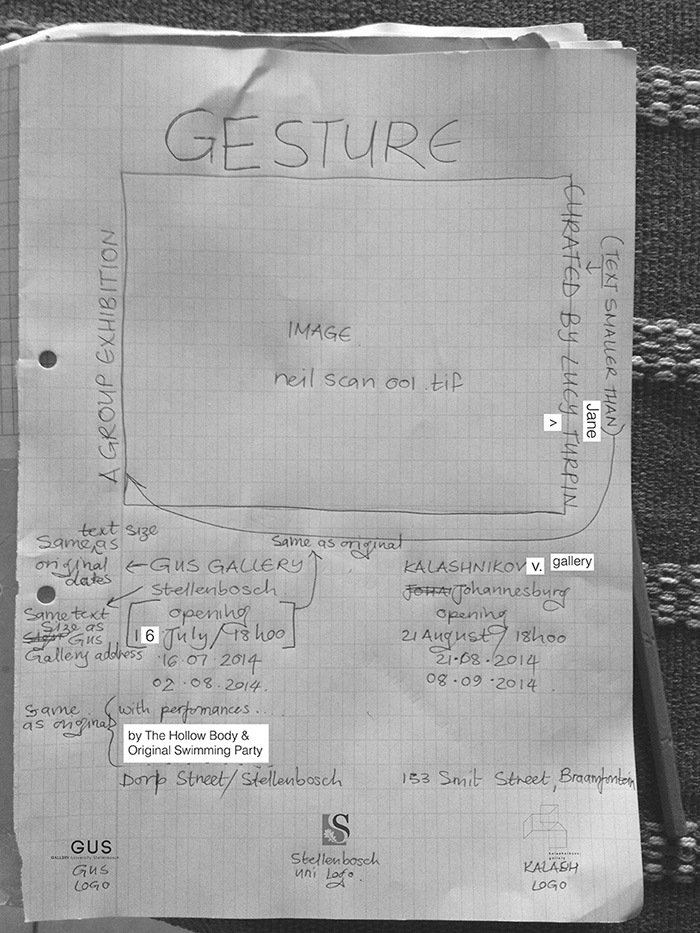 GESTURE
A GROUP EXHIBITION
CURATED BY LUCY TURPIN
(TEXT SMALLER THAN)
^
Jane
IMAGE
neil scan 001.tif
text size
Same as
original
dates
Same as original
← GUS GALLERY
Stellenbosch
opening
16 July / 18h00
16.07.2014
02.08.2014.
KALASHNIKOV v. gallery
JOHA Johannesburg
opening
21 August / 18h00
21.08.2014
08.09.2014.
Same text
Size as
GUS
Gallery address
Same
as original
with perfomances....
by The Hollow Body &
Original Swimming Party
Dorp Street / Stellenbosch
153 Smit Street, Braamfontein
GUS
GALLERY University Stellenbosch
GUS
LOGO
S
Stellenbosch
uni Logo.
kalashnikovv
gallery
KALASH
LOGO